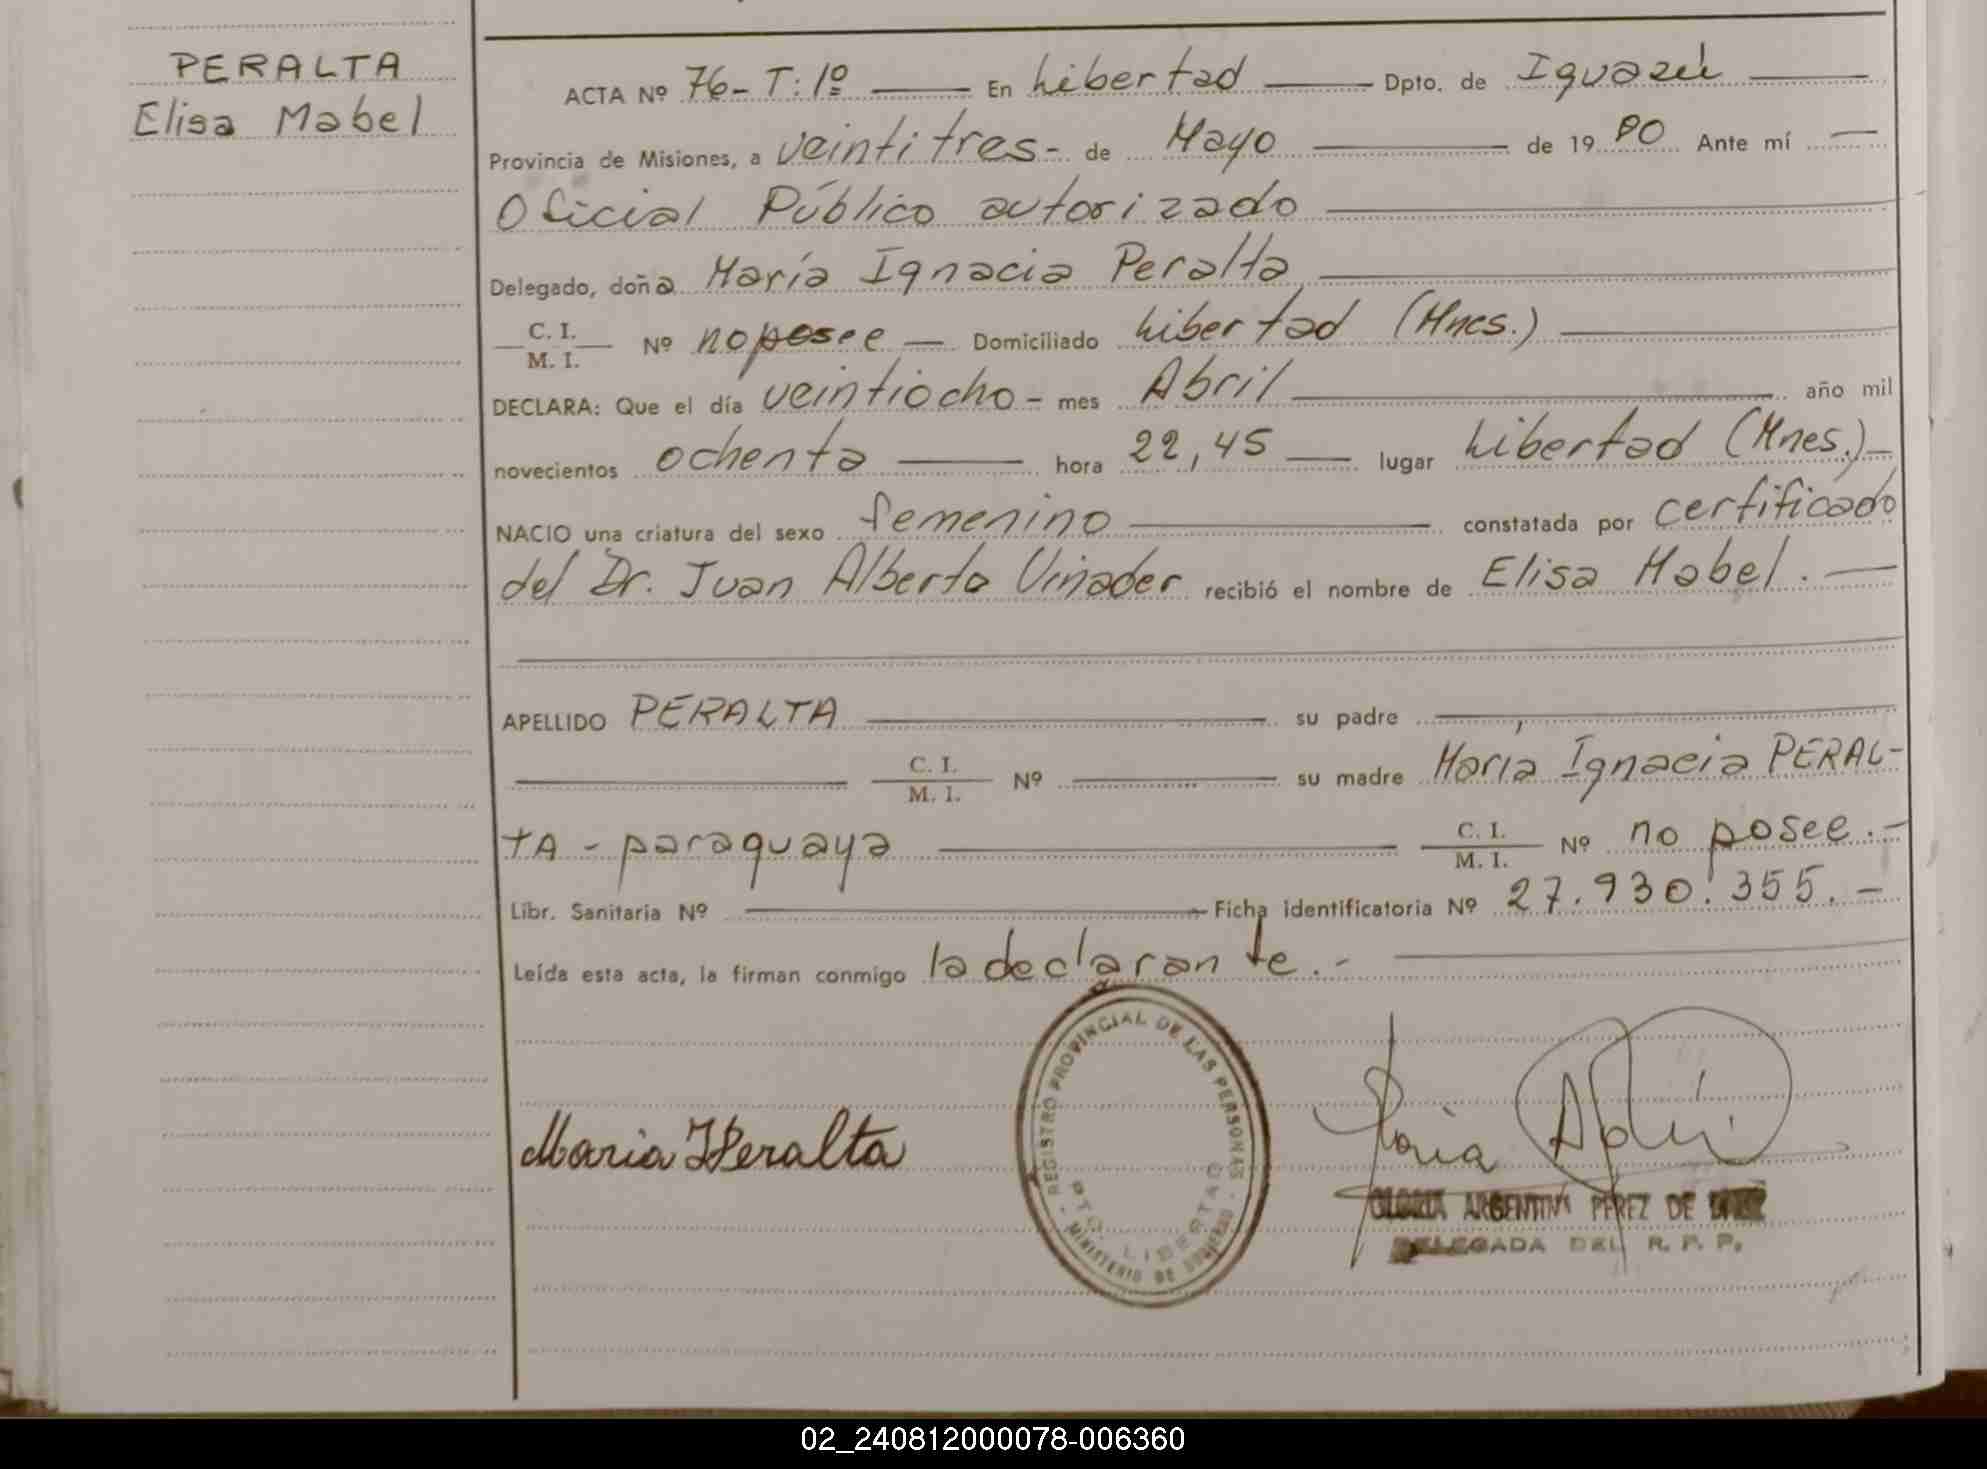 PERALTA
Elisa Mabel
ACTA Nº 76- T: 1º En Libertad Dpto. de Iguazú
Provincia de Misiones, a veintitres- de Mayo de 19 80 Ante mí
Oficial Público autorizado
Delegado, doña María Ignacia Peralta
C. I.
M. I. Nº no posee Domiciliado Libertad (Mnes.)
DECLARA: Que el día veintiocho - mes Abril año mil
novecientos ochenta hora 22,45 lugar Libertad (Mnes.)
NACIO una criatura del sexo femenino constatada por certificado
del Dr. Juan Alberto Viñader recibió el nombre de Elisa Mabel.
APELLIDO PERALTA su padre
C. I.
M. I. Nº su madre María Ignacia PERAL-
TA - paraguaya C. I.
M. I. Nº no posee.-
Libr. Sanitaria Nº Ficha identificatoria Nº 27.930.355.-
Leída esta acta, la firman conmigo la declarante.-
REGISTRO PROVINCIAL DE LAS PERSONAS
PTO. LIBERTAD
MINISTERIO DE GOBIERNO
Maria I Peralta
GLORIA ARGENTINA PEREZ DE
DELEGADA DEL R. P. P.
02_240812000078-006360